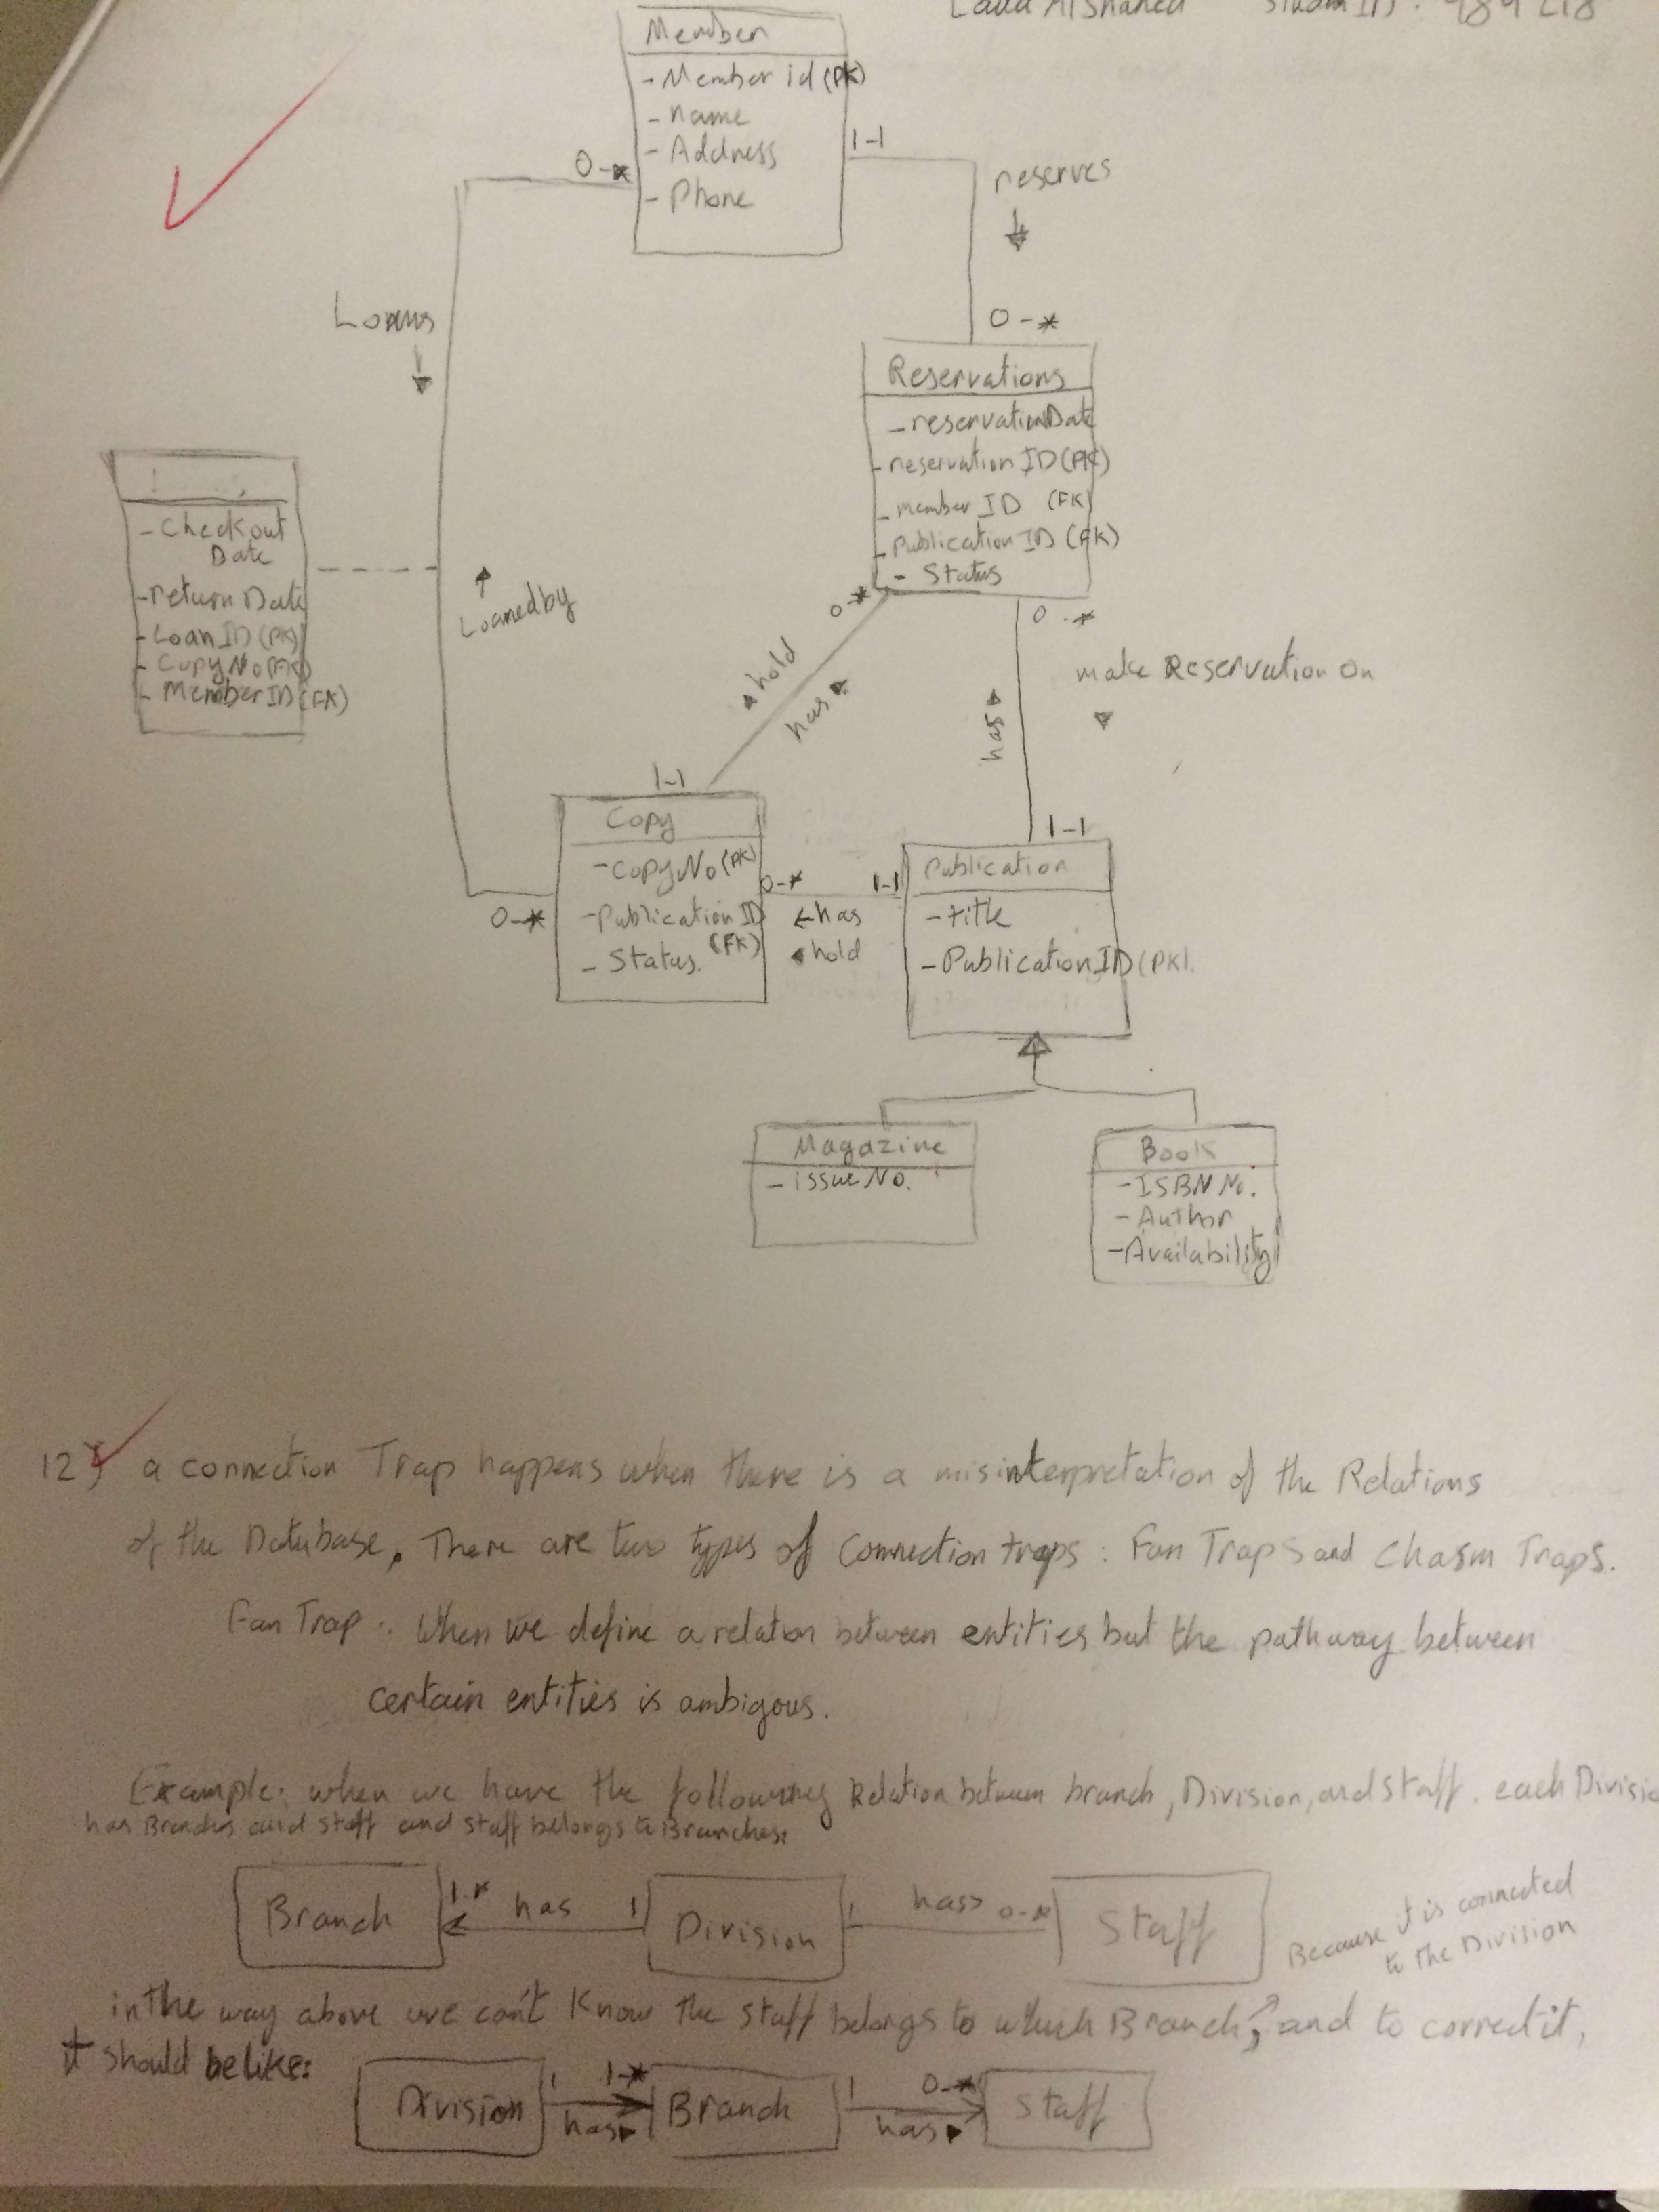 Member
- Member id (PK)
- name
- Address
- Phone
0-*
1-1
reserves
Loans
0-*
Reservations
- reservationDate
- reservation ID (PK)
- member ID (FK)
- Publication ID (FK)
- Status
- Checkout
Date
- return Date
- Loan ID (PK)
- Copy No (FK)
- Member ID (FK)
Loaned by
0-*
0..*
hold
has
has
make Reservation on
1-1
1-1
Copy
- copy No (PK)
- Publication ID
(FK)
- Status.
0-*
0-*
1-1
has
hold
Publication
- title
- Publication ID (PK).
Magazine
- issue No.
Book
- ISBN No.
- Author
- Availability
12) a connection Trap happens when there is a misinterpretation of the Relations
of the Database. There are two types of Connection traps: Fan Traps and Chasm Traps.
Fan Trap: When we define a relation between entities but the pathway between
certain entities is ambigous.
Example: when we have the following Relation between branch, Division, and Staff. each Divisio
has Branches and staff and staff belongs to Branches:
Branch 1..* has 1 Division 1 has> 0-* Staff
Because it is connected
to the Division
in the way above we can't Know the staff belongs to which Branch, and to correct it,
it should be like:
Division 1 has 1-* Branch 1 has 0-* Staff